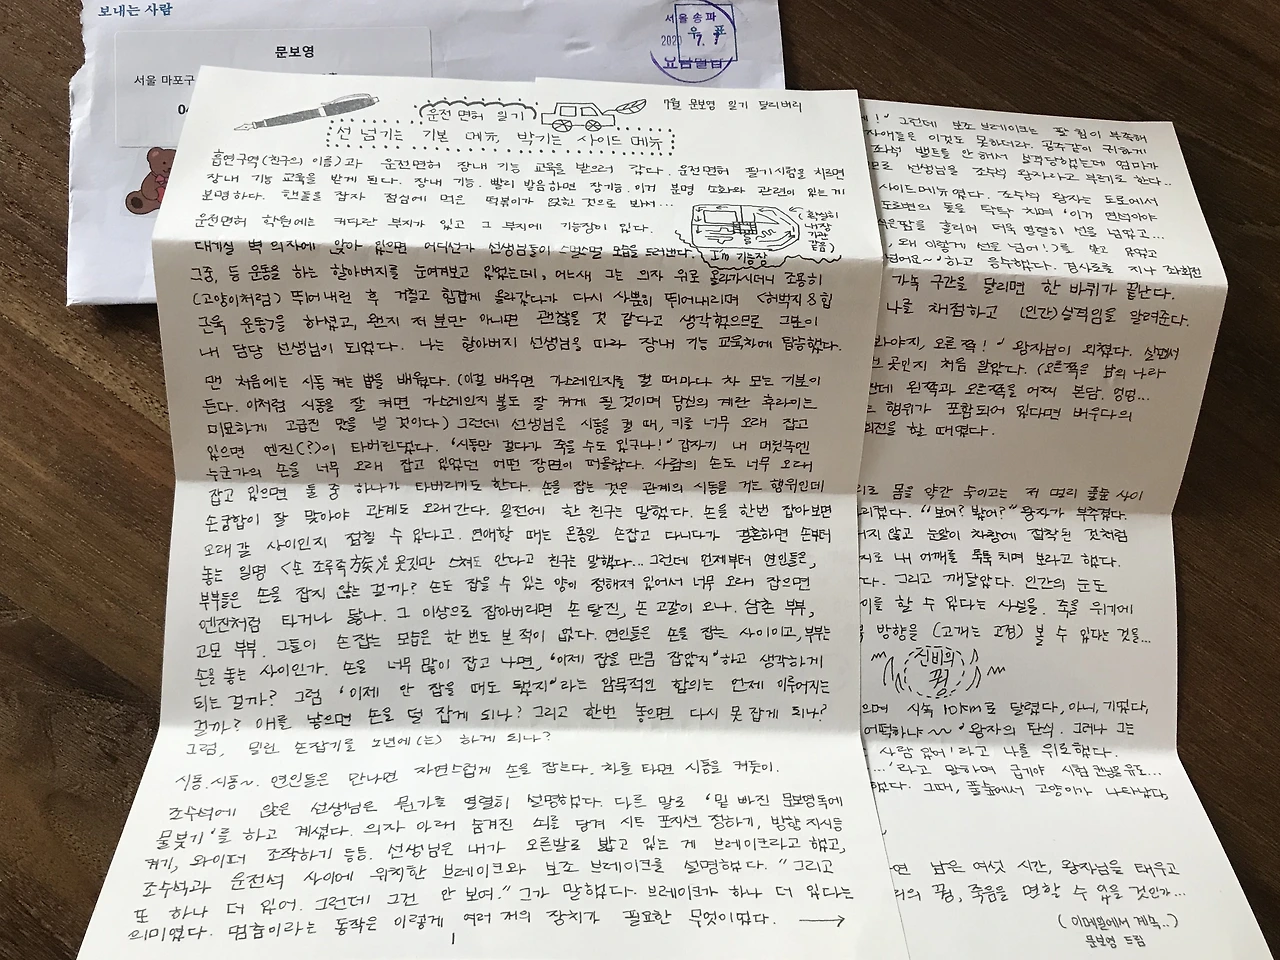 보내는 사람
문보영
서울 마포구
04
서울송파
우표
2020 7. 7
요금별납
7월 문보영 일기 딜리버리
운전 면허 일기
선 넘기는 기본 메뉴, 박기는 사이드 메뉴
흡연구역(친구의 이름)과 운전면허 장내 기능 교육을 받으러 갔다. 운전면허 필기시험을 치르면
장내 기능 교육을 받게 된다. 장내 기능. 빨리 발음하면 장기능. 이거 분명 소화와 관련이 있는게
분명하다. 핸들을 잡자 점심에 먹은 떡볶이가 얹힌 것으로 봐서...
운전면허 학원에는 커다란 부지가 있고 그 부지에 기능장이 있다.
(확실히
내장
기관
같음)
I'm 기능장
대기실 벽 의자에 앉아 있으면 어디선가 선생님들이 스멀스멀 모습을 드러낸다.
그중, 등 운동을 하는 할아버지를 눈여겨보고 있었는데, 어느새 그는 의자 위로 올라가시더니 조용히
(고양이처럼) 뛰어내린 후 거칠고 힘겹게 올라갔다가 다시 사뿐히 뛰어내리며 <허벅지&힙
근육 운동>을 하셨고, 왠지 저 분만 아니면 괜찮을 것 같다고 생각했으므로 그분이
내 담당 선생님이 되었다. 나는 할아버지 선생님을 따라 장내 기능 교육차에 탑승했다.
맨 처음에는 시동 켜는 법을 배웠다. (이걸 배우면 가스레인지를 켤 때마다 차 모는 기분이
든다. 이처럼 시동을 잘 켜면 가스레인지 불도 잘 켜게 될 것이며 당신의 계란 후라이는
미묘하게 고급진 맛을 낼 것이다) 그런데 선생님은 시동을 켤 때, 키를 너무 오래 잡고
있으면 엔진(?)이 타버린댔다. '시동만 걸다가 죽을 수도 있구나!' 갑자기 내 머릿속엔
누군가의 손을 너무 오래 잡고 있었던 어떤 장면이 떠올랐다. 사람의 손도 너무 오래
잡고 있으면 둘 중 하나가 타버리기도 한다. 손을 잡는 것은 관계의 시동을 거는 행위인데
손궁합이 잘 맞아야 관계도 오래간다. 일전에 한 친구는 말했다. 손을 한번 잡아보면
오래갈 사이인지 점칠 수 있다고. 연애할 때는 온종일 손잡고 다니다가 결혼하면 손부터
놓는 일명 <손 조루족族>은 옷깃만 스쳐도 안다고 친구는 말했다... 그런데 언제부터 연인들은,
부부들은 손을 잡지 않는 걸까? 손도 잡을 수 있는 양이 정해져 있어서 너무 오래 잡으면
엔진처럼 타거나 닳나. 그 이상으로 잡아버리면 손 탈진, 손 고갈이 오나. 삼촌 부부,
고모 부부. 그들이 손잡는 모습은 한 번도 본 적이 없다. 연인들은 손을 잡는 사이이고, 부부는
손을 놓는 사이인가. 손을 너무 많이 잡고 나면, '이제 잡을 만큼 잡았지'하고 생각하게
되는 걸까? 그럼 '이제 안 잡을 때도 됐지'라는 암묵적인 합의는 언제 이루어지는
걸까? 애를 낳으면 손을 덜 잡게 되나? 그리고 한번 놓으면 다시 못 잡게 되나?
그럼, 밀린 손잡기를 노년에(는) 하게 되나?
시동.시동~. 연인들은 만나면 자연스럽게 손을 잡는다. 차를 타면 시동을 켜듯이.
조수석에 앉은 선생님은 뭔가를 열렬히 설명했다. 다른 말로 '밑 빠진 문보영독에
물붓기'를 하고 계셨다. 의자 아래 숨겨진 쇠를 당겨 시트 포지션 정하기, 방향 지시등
켜기, 와이퍼 조작하기 등등. 선생님은 내가 오른발로 밟고 있는 게 브레이크라고 했고,
조수석과 운전석 사이에 위치한 브레이크와 보조 브레이크를 설명했다. "그리고
또 하나 더 있어. 그런데 그건 안 보여." 그가 말했다. 브레이크가 하나 더 있다는
의미였다. 멈춤이라는 동작은 이렇게 여러 개의 장치가 필요한 무엇이었다. →
1
!' 그런데 보조 브레이크는 팔 힘이 부족해
자애들은 이것도 못하더라. 공주같이 귀하게
조수석 벨트를 안 해서 실격당했는데 엄마가
므로 선생님을 조수석 왕자라고 부르기로 한다...
사이드메뉴였다. 조수석 왕자는 도로에서
도로변의 돌을 탁탁 치며 '이거 연석이야
식은땀을 흘리며 더욱 열렬히 선을 넘었고...
, 왜 이렇게 선을 넘어!)를
넘어요~'하고 응수했다. 경사로를 지나 좌회전
가속 구간을 달리면 한 바퀴가 끝난다.
나를 채점하고 (인간)실격임을 알려준다.
봐야지, 오른쪽!' 왕자님이 외쳤다. 살면서
곳인지 처음 알았다. (오른쪽은 남의 나라
런데 왼쪽과 오른쪽을 어찌 본담. 엉엉...
는 행위가 포함되어 있다면 배우다의
회전을 할 때였다.
리로 몸을 약간 숙이고는 저 멀리 풀숲 사이
리켰다. "보여? 봤어?" 왕자가 부추겼다.
지 않고 눈알이 차창에 접착된 것처럼
지로 내 어깨를 툭툭 치며 보라고 했다.
다. 그리고 깨달았다. 인간의 눈도
이를 할 수 있다는 사실을. 죽을 위기에
방향을 (고개는 고정) 볼 수 있다는 것을...
전비의
꿩
으며 시속 10km로 달렸다, 아니, 기었다,
어떡하냐~~' 왕자의 탄식. 그러나 그는
사람 있어!라고 나를 위로했다.
...'라고 말하며 급기야 시험
했다. 그때, 풀숲에서 고양이가 나타났다,
연 남은 여섯 시간, 왕자님을 태우고
리의 꿩, 죽음을 면할 수 있을 것인가...
(이메일에서 계속..)
문보영 드림